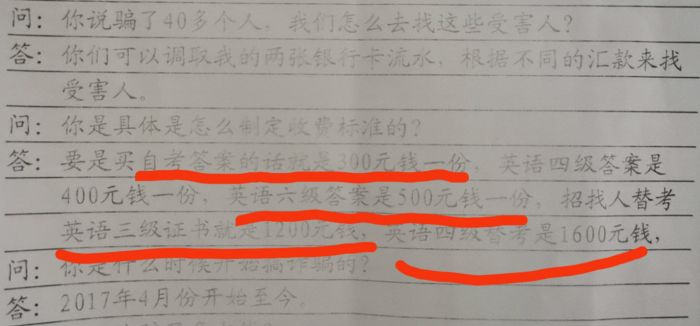 问：你说骗了40多个人，我们怎么去找这些受害人？
答：你们可以调取我的两张银行卡流水，根据不同的汇款来找
受害人。
问：你是具体是怎么制定收费标准的？
答：要是买自考答案的话就是300元钱一份，英语四级答案是
400元钱一份，英语六级答案是500元钱一份，招找人替考
英语三级证书就是1200元钱，英语四级替考是1600元钱，
问：你是什么时候开始搞诈骗的？
答：2017年4月份开始至今。